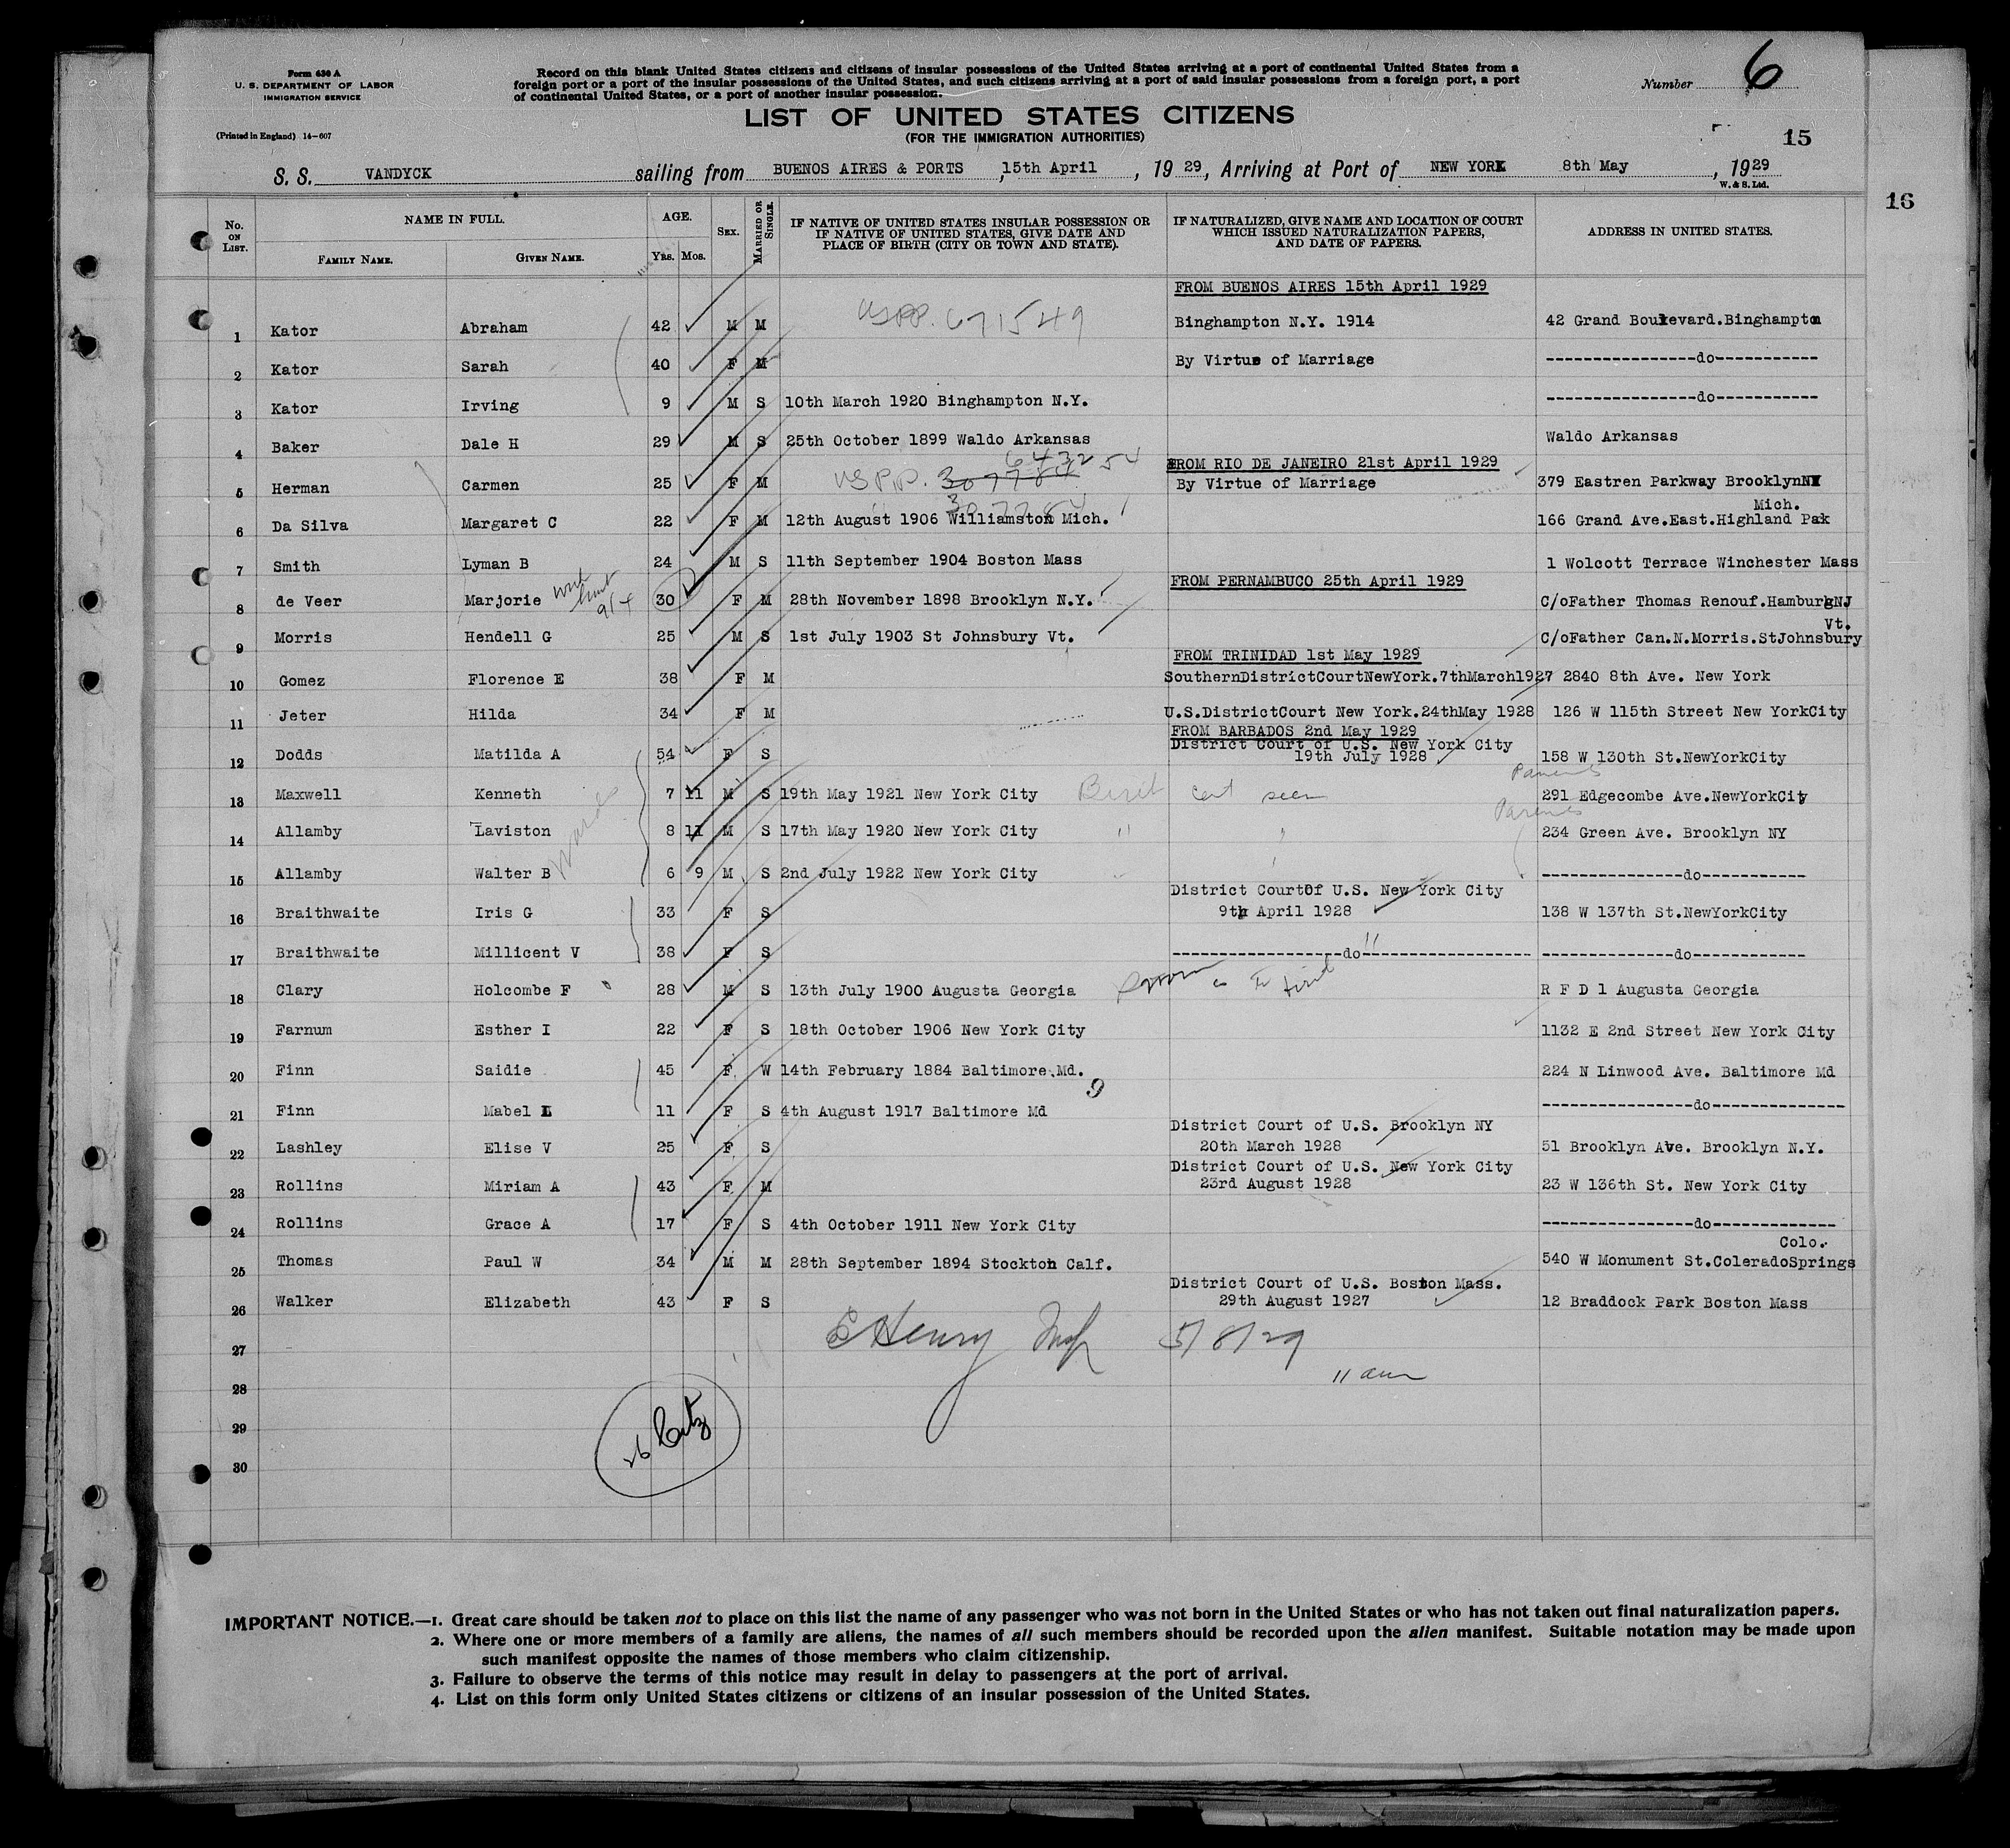 Form 630 A
U. S. DEPARTMENT OF LABOR
IMMIGRATION SERVICE
(Printed in England) 14-607
Record on this blank United States citizens and citizens of insular possessions of the United States arriving at a port of continental United States from a
foreign port or a port of the insular possessions of the United States, and such citizens arriving at a port of said insular possessions from a foreign port, a port
of continental United States, or a port of another insular possession.
Number 6
LIST OF UNITED STATES CITIZENS
(FOR THE IMMIGRATION AUTHORITIES)
15
16
S. S. VANDYCK sailing from BUENOS AIRES & PORTS, 15th April, 1929, Arriving at Port of NEW YORK 8th May, 1929
W. & S. Ltd.
No. ON LIST. NAME IN FULL. FAMILY NAME. GIVEN NAME. AGE. YRS. MOS. SEX. MARRIED OR SINGLE. IF NATIVE OF UNITED STATES INSULAR POSSESSION OR IF NATIVE OF UNITED STATES, GIVE DATE AND PLACE OF BIRTH (CITY OR TOWN AND STATE). IF NATURALIZED, GIVE NAME AND LOCATION OF COURT WHICH ISSUED NATURALIZATION PAPERS, AND DATE OF PAPERS. ADDRESS IN UNITED STATES.
FROM BUENOS AIRES 15th April 1929
1 Kator Abraham 42 M M USPP. 671549 Binghampton N.Y. 1914 42 Grand Boulevard.Binghampton
2 Kator Sarah 40 F M By Virtue of Marriage ----------------do-----------
3 Kator Irving 9 M S 10th March 1920 Binghampton N.Y. ----------------do-----------
4 Baker Dale H 29 M S 25th October 1899 Waldo Arkansas Waldo Arkansas
FROM RIO DE JANEIRO 21st April 1929
643254
5 Herman Carmen 25 F M USP.P. 307784 By Virtue of Marriage 379 Eastren Parkway BrooklynNY
307784
Mich.
6 Da Silva Margaret C 22 F M 12th August 1906 Williamston Mich. 166 Grand Ave.East.Highland Pak
7 Smith Lyman B 24 M S 11th September 1904 Boston Mass 1 Wolcott Terrace Winchester Mass
FROM PERNAMBUCO 25th April 1929
8 de Veer Marjorie 30 F M 28th November 1898 Brooklyn N.Y. C/oFather Thomas Renouf.HamburgNJ
Vt.
9 Morris Hendell G 25 M S 1st July 1903 St Johnsbury Vt. C/oFather Can.N.Morris.StJohnsbury
FROM TRINIDAD 1st May 1929
10 Gomez Florence E 38 F M SouthernDistrictCourtNewYork.7thMarch1927 2840 8th Ave. New York
11 Jeter Hilda 34 F M U.S.DistrictCourt New York.24thMay 1928 126 W 115th Street New YorkCity
FROM BARBADOS 2nd May 1929
District Court of U.S. New York City
12 Dodds Matilda A 54 F S 19th July 1928 158 W 130th St.NewYorkCity
Parents
13 Maxwell Kenneth 7 11 M S 19th May 1921 New York City Birth cert seen 291 Edgecombe Ave.NewYorkCity
Parents
14 Allamby Laviston 8 11 M S 17th May 1920 New York City " 234 Green Ave. Brooklyn NY
15 Allamby Walter B 6 9 M S 2nd July 1922 New York City ---------------do-----------
District CourtOf U.S. New York City
16 Braithwaite Iris G 33 F S 9th April 1928 138 W 137th St.NewYorkCity
17 Braithwaite Millicent V 38 F S ------------------do------------------ --------------do------------
18 Clary Holcombe F 28 M S 13th July 1900 Augusta Georgia R F D 1 Augusta Georgia
19 Farnum Esther I 22 F S 18th October 1906 New York City 1132 E 2nd Street New York City
20 Finn Saidie 45 F W 14th February 1884 Baltimore.Md. 224 N Linwood Ave. Baltimore Md
9
21 Finn Mabel L 11 F S 4th August 1917 Baltimore Md ----------------do--------------
District Court of U.S. Brooklyn NY
22 Lashley Elise V 25 F S 20th March 1928 51 Brooklyn Ave. Brooklyn N.Y.
District Court of U.S. New York City
23 Rollins Miriam A 43 F M 23rd August 1928 23 W 136th St. New York City
24 Rollins Grace A 17 F S 4th October 1911 New York City ----------------do-------------
Colo.
25 Thomas Paul W 34 M M 28th September 1894 Stockton Calf. 540 W Monument St.ColeradoSprings
District Court of U.S. Boston Mass.
26 Walker Elizabeth 43 F S 29th August 1927 12 Braddock Park Boston Mass
27 E Henry Insp 5/8/29
28 11 am
29 26 Citz
30
IMPORTANT NOTICE.—1. Great care should be taken not to place on this list the name of any passenger who was not born in the United States or who has not taken out final naturalization papers.
2. Where one or more members of a family are aliens, the names of all such members should be recorded upon the alien manifest. Suitable notation may be made upon
such manifest opposite the names of those members who claim citizenship.
3. Failure to observe the terms of this notice may result in delay to passengers at the port of arrival.
4. List on this form only United States citizens or citizens of an insular possession of the United States.